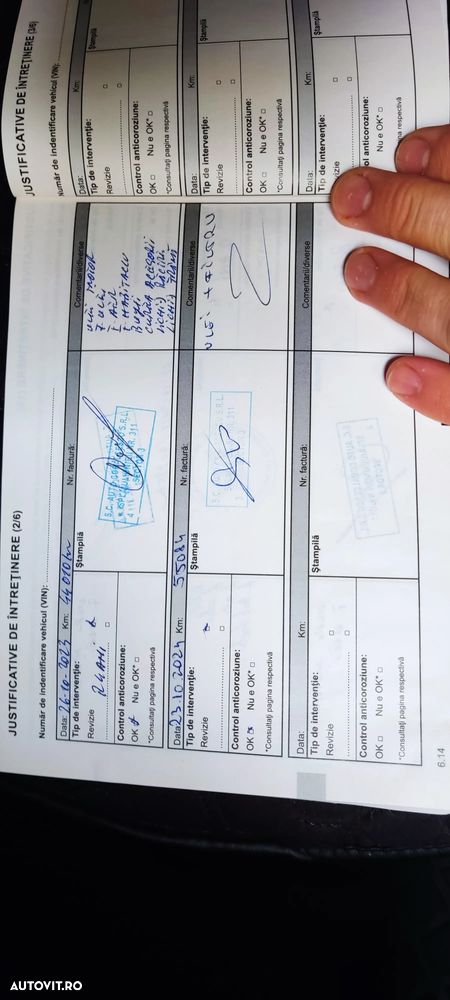 JUSTIFICATIVE DE ÎNTREȚINERE (2/6)
Număr de indentificare vehicul (VIN):
Data: 26.10.2023 Km: 44010 km Nr. factură: Comentarii/diverse
Tip de intervenție: Ștampilă
Revizie
2 4 ANI
Control anticoroziune:
OK Nu e OK*
*Consultați pagina respectivă
ULEI MOTOR
F ULEI
F AER
F HABITACLU
BUJII
CUREA ACCESORII
LICHID RĂCIRE
LICHID FRÂNĂ
Data: 23.10.2024 Km: 55084 Nr. factură: Comentarii/diverse
Tip de intervenție: Ștampilă
Revizie
Control anticoroziune:
OK Nu e OK*
*Consultați pagina respectivă
ULEI + FILTRU
Data: Km: Nr. factură: Comentarii/diverse
Tip de intervenție: Ștampilă
Revizie
Control anticoroziune:
OK Nu e OK*
*Consultați pagina respectivă
6.14
JUSTIFICATIVE DE ÎNTREȚINERE (3/6)
Număr de indentificare vehicul (VIN):
Data: Km:
Tip de intervenție: Ștampilă
Revizie
Control anticoroziune:
OK Nu e OK*
*Consultați pagina respectivă
Data: Km:
Tip de intervenție: Ștampilă
Revizie
Control anticoroziune:
OK Nu e OK*
*Consultați pagina respectivă
Data: Km:
Tip de intervenție:
Revizie
anticoroziune:
Nu e OK*
pagina respectivă
AUTOVIT.RO